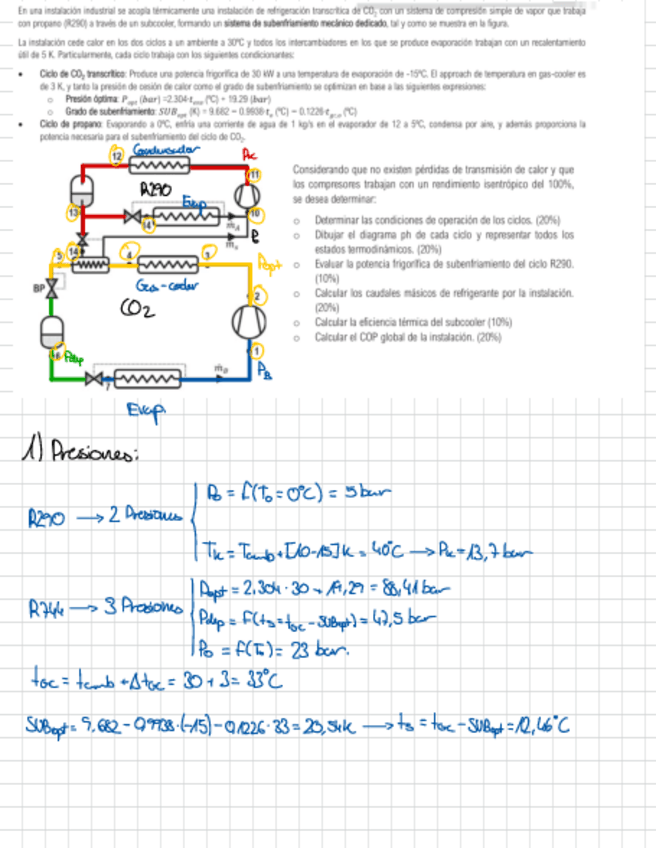 En una instalación industrial se acopla térmicamente una instalación de refrigeración transcrítica de CO₂ con un sistema de compresión simple de vapor que trabaja
con propano (R290) a través de un subcooler, formando un sistema de subenfriamiento mecánico dedicado, tal y como se muestra en la figura.
La instalación cede calor en los dos ciclos a un ambiente a 30ºC y todos los intercambiadores en los que se produce evaporación trabajan con un recalentamiento
útil de 5 K. Particularmente, cada ciclo trabaja con los siguientes condicionantes:
• Ciclo de CO₂ transcrítico: Produce una potencia frigorífica de 30 kW a una temperatura de evaporación de -15ºC. El approach de temperatura en gas-cooler es
de 3 K, y tanto la presión de cesión de calor como el grado de subenfriamiento se optimizan en base a las siguientes expresiones:
○ Presión óptima: P (bar) =2.304·t (ºC) + 19.29 (bar)
○ Grado de subenfriamiento: SUB (K) = 9.682 − 0.9938·t (ºC) − 0.1226·t (ºC)
• Ciclo de propano: Evaporando a 0ºC, enfría una corriente de agua de 1 kg/s en el evaporador de 12 a 5ºC, condensa por aire, y además proporciona la
potencia necesaria para el subenfriamiento del ciclo de CO₂.
Condensador
12
Pc
11
R290
Evap
13
10
14
B
5
14
4
3
Popt
Gas-cooler
BP
2
CO₂
6
Pdep
1
P_B
7
Evap.
Considerando que no existen pérdidas de transmisión de calor y que
los compresores trabajan con un rendimiento isentrópico del 100%,
se desea determinar:
○ Determinar las condiciones de operación de los ciclos. (20%)
○ Dibujar el diagrama ph de cada ciclo y representar todos los
estados termodinámicos. (20%)
○ Evaluar la potencia frigorífica de subenfriamiento del ciclo R290.
(10%)
○ Calcular los caudales másicos de refrigerante por la instalación.
(20%)
○ Calcular la eficiencia térmica del subcooler (10%)
○ Calcular el COP global de la instalación. (20%)
1) Presiones:
R290 → 2 Presiones
P₀ = f(T₀ = 0ºC) = 5 bar
Tk = Tamb + [10-15] K = 40ºC → Pk = 13,7 bar
R744 → 3 Presiones
Popt = 2,304 · 30 + 19,29 = 88,41 bar
Pdep = f(t₅ = tgc − SUBopt) = 47,5 bar
P₀ = f(T₀) = 23 bar.
tgc = tamb + Δtgc = 30 + 3 = 33ºC
SUBopt = 9,682 − 0,9938·(−15) − 0,1226·33 = 20,54K → t₅ = tgc − SUBopt = 12,46ºC